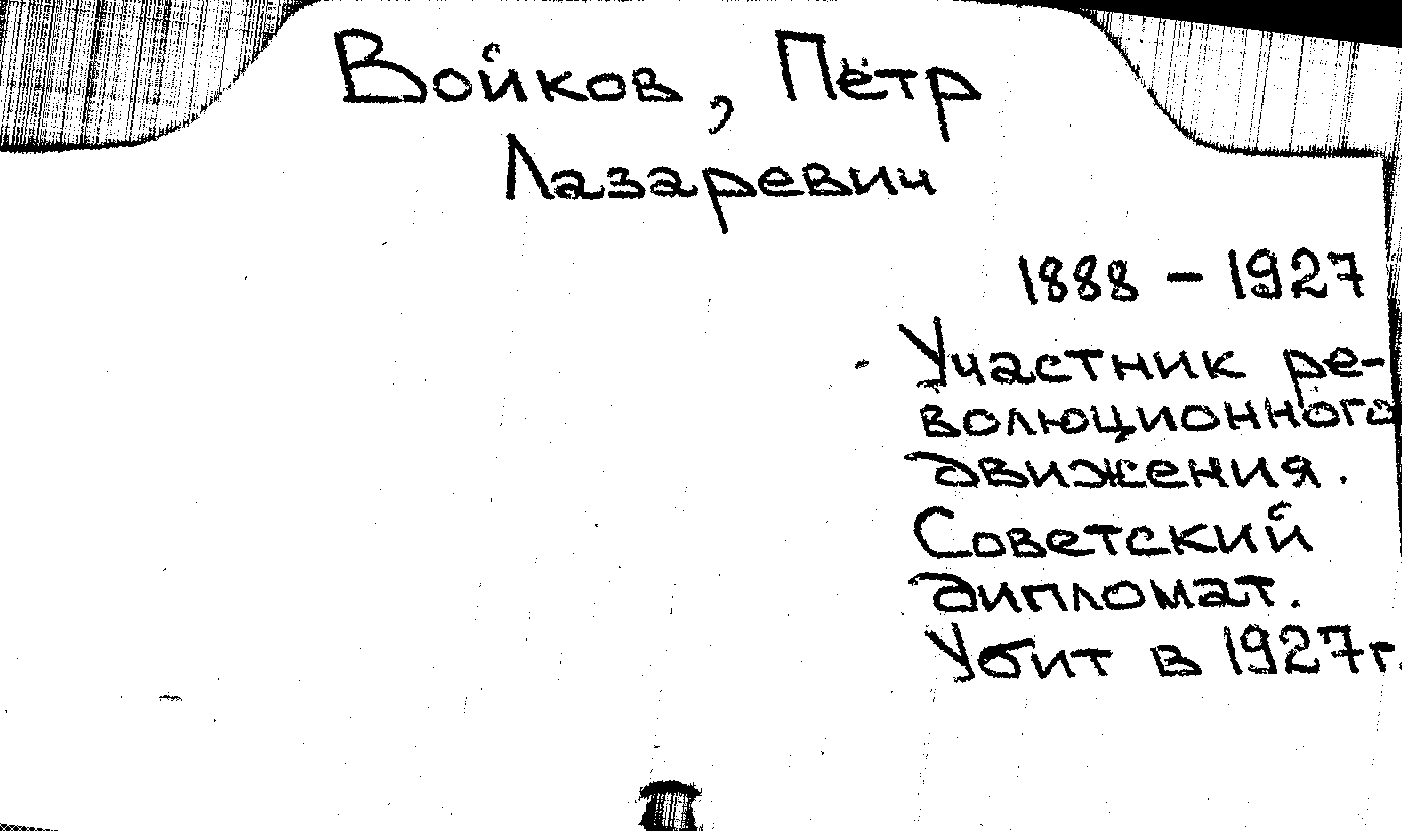 Войков, Пётр
Лазаревич
1888 - 1927
Участник ре-
волюционного
движения.
Советский
дипломат.
Убит в 1927г.